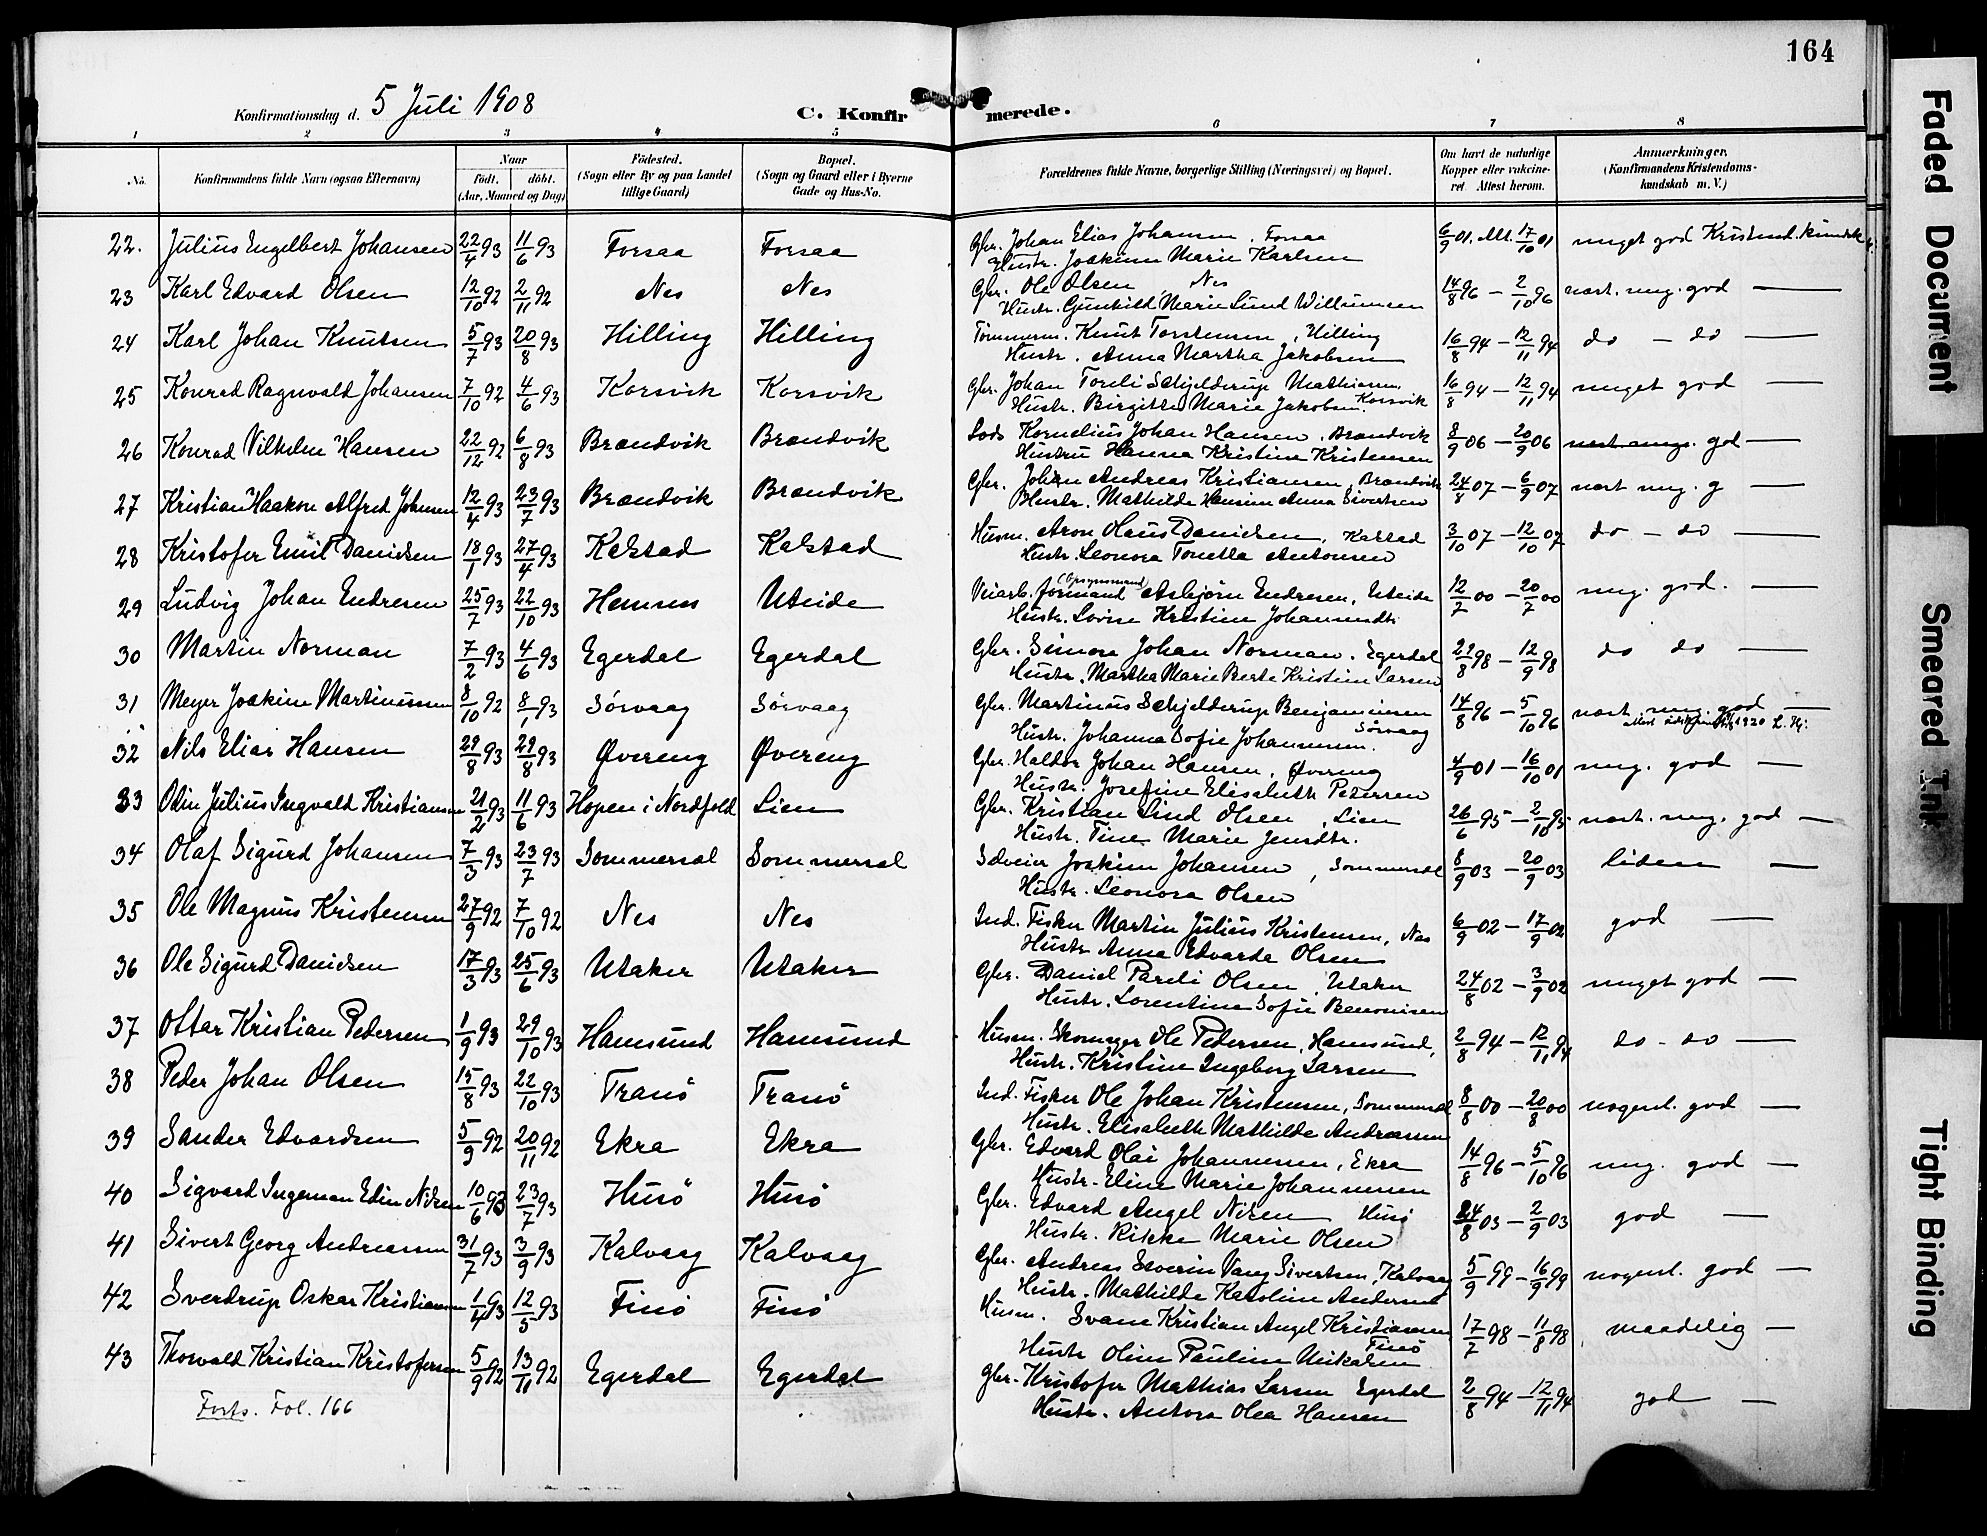 164
Konfirmationsdag d. 5 Juli 1908
C. Konfirmerede.
1 2 3 4 5 6 7 8
No. Konfirmandens fulde Navn (ogsaa Efternavn) Naar Födt. döbt. (Aar, Maaned og Dag) Födested. (Sogn eller By og paa Landet tillige Gaard) Bopæl. (Sogn og Gaard eller i Byerne Gade og Hus-No. Forældrenes fulde Navne, borgerlige Stilling (Næringsvei) og Bopæl. Om havt de naturlige Kopper eller vakcineret. Attest herom. Anmærkninger. (Konfirmandens Kristendomskundskab m. V.)
22. Julius Engelbert Johansen 22/4 93 11/6 93 Forsaa Forsaa Gbr. Johan Elias Johansen, Forsaa 6/9 01. Att. 17/10 01 meget god Kristend. kundsk
Hustr. Joakime Marie Karlsen
23 Karl Edvard Olsen 12/10 92 2/11 92 Nes Nes Gbr. Ole Olsen, Nes 14/8 96 – 2/10 96 næst. meg. god —
Hustr. Gunhild Marie Lund Willumsen
24 Karl Johan Knutsen 5/7 93 20/8 93 Hilling Hilling Tømmerm. Knut Torstensen, Hilling 16/8 94 – 12/11 94 do – do —
Hustr. Anna Martha Jakobsen
25 Konrad Ragnvald Johansen 7/10 92 4/6 93 Korsvik Korsvik Gbr. Johan Schjelderup Mathiasen, 16/8 94 – 12/11 94 meget god —
Hustr. Birgitte Marie Jakobsen. Korsvik
26 Konrad Vilhelm Hansen 22/12 92 6/8 93 Brændvik Brændvik Lods Kornelius Johan Hansen, Brændvik 8/9 06 – 20/9 06 næst meg. god —
Hustru Hanna Kristine Kristensen
27 Kristian Haakon Alfred Johnsen 12/4 93 23/7 93 Brændvik Brændvik Gbr. Andreas Kristiansen, Brændvik 24/8 07 – 6/9 07 næst meg. g —
Hustr. Mathilde Hansine Anna Sivertsen
28 Kristofer Emil Danielsen 18/1 93 27/4 93 Kalstad Kalstad Husm. Aron Claus Danielsen, Kalstad 3/10 07 – 12/10 07 do – do —
Hustr. Leonora Tonette Antonsen
29 Ludvig Johan Endresen 25/7 93 22/10 93 Hemnes Uteide Veiarb. formand (Opsynsmand) Asbjørn Endresen, Uteide 12/7 00 – 20/7 00 meg. god. —
Hustr. Lovise Kristine Johannesdtr
30 Martin Norman 7/2 93 4/6 93 Egerdal Egerdal Gbr. Simon Johan Norman. Egerdal 29/8 98 – 12/9 98 do do —
Hustr. Martha Marie Berte Kristine Larsen
31 Meyer Joakim Martinussen 8/10 92 8/1 93 Sørvaag Sørvaag Gbr. Martinus Schjelderup Benjaminsen 14/8 96 – 5/10 96 næst. meg. god —
Hustr. Johanna Sofie Johannesen. Sørvaag 1920
32 Nils Elias Hansen 29/8 93 29/8 93 Øvereng Øvereng Gbr. Haldor Johan Hansen, Øvereng 4/9 01 – 16/10 01 meg. god —
Hustr. Josefine Elisabeth Petersen
33 Odin Julius Ingvald Kristiansen 21/2 93 11/6 93 Hopen i Nordfold Lien Gbr. Kristian Lind Olsen, Lien 26/6 95 – 2/10 95 næst. meg. god —
Hustr. Tine Marie Jensdtr.
34 Olaf Sigurd Johansen 7/3 93 23/7 93 Sommersel Sommersel Sælveier Joakim Johansen, Sommersel 8/9 03 – 20/9 03 liden —
Hustr. Leonora Olsen
35 Ole Magnus Kristensen 27/9 92 7/10 92 Nes Nes Ind. Fisker Martin Julius Kristensen, Nes 6/9 02 – 17/9 02 god —
Hustr Anna Edvarda Olsen
36 Ole Sigurd Danielsen 17/3 93 25/6 93 Utaker Utaker Gbr. Daniel Pareli Olsen, Utaker 24/8 02 – 3/9 02 meget god —
Hustr. Lorentine Sofie Benonisen
37 Ottar Kristian Pedersen 1/9 93 29/10 93 Hamsund Hamsund Husm. Skomager Ole Pedersen, Hamsund, 2/8 94 – 12/11 94 do – do —
Hustr. Kristine Ingeborg Larsen
38 Peder Johan Olsen 15/8 93 22/10 93 Tranö Tranö Ind. Fisker Ole Johan Kristensen, Sommersel 8/8 00 – 20/8 00 nogenl. god —
Hustr. Elisabeth Mathilde Andreasen
39 Sander Edvardsen 5/9 92 20/11 92 Ekra Ekra Gbr. Edvard Olai Johannesen, Ekra 14/8 96 – 5/10 96 meg. god —
Hustr. Eline Marie Johannesen
40 Sigvard Ingeman Edin Nilsen 10/6 93 23/7 93 Husö Husö Gbr. Edvard Angel Nilsen Husö 24/8 03 – 2/9 03 god —
Hustr. Rikke Marie Olsen
41 Sivert Georg Andreassen 31/7 93 3/9 93 Kalvaag Kalvaag Gbr. Andreas Severin Vang Sivertsen, Kalvaag 5/9 99 – 16/9 99 nogenl. god —
Hustr. Mathilde Karoline Andersen
42 Sverdrup Oskar Kristiansen 1/4 93 12/5 93 Finö Finö Husm. Svane Kristian Angel Kristiansen 17/7 98 – 11/8 98 maadelig —
Hustr Oline Pauline Mikalsen Finö
43 Thorvald Kristian Kristofersen 5/9 92 13/11 92 Egerdal Egerdal Gbr. Kristofer Mathias Larsen Egerdal 2/8 94 – 12/11 94 god —
Hustr. Antora Olea Hansen
Forts. Fol. 166
Faded Document
Smeared Ink
Tight Binding